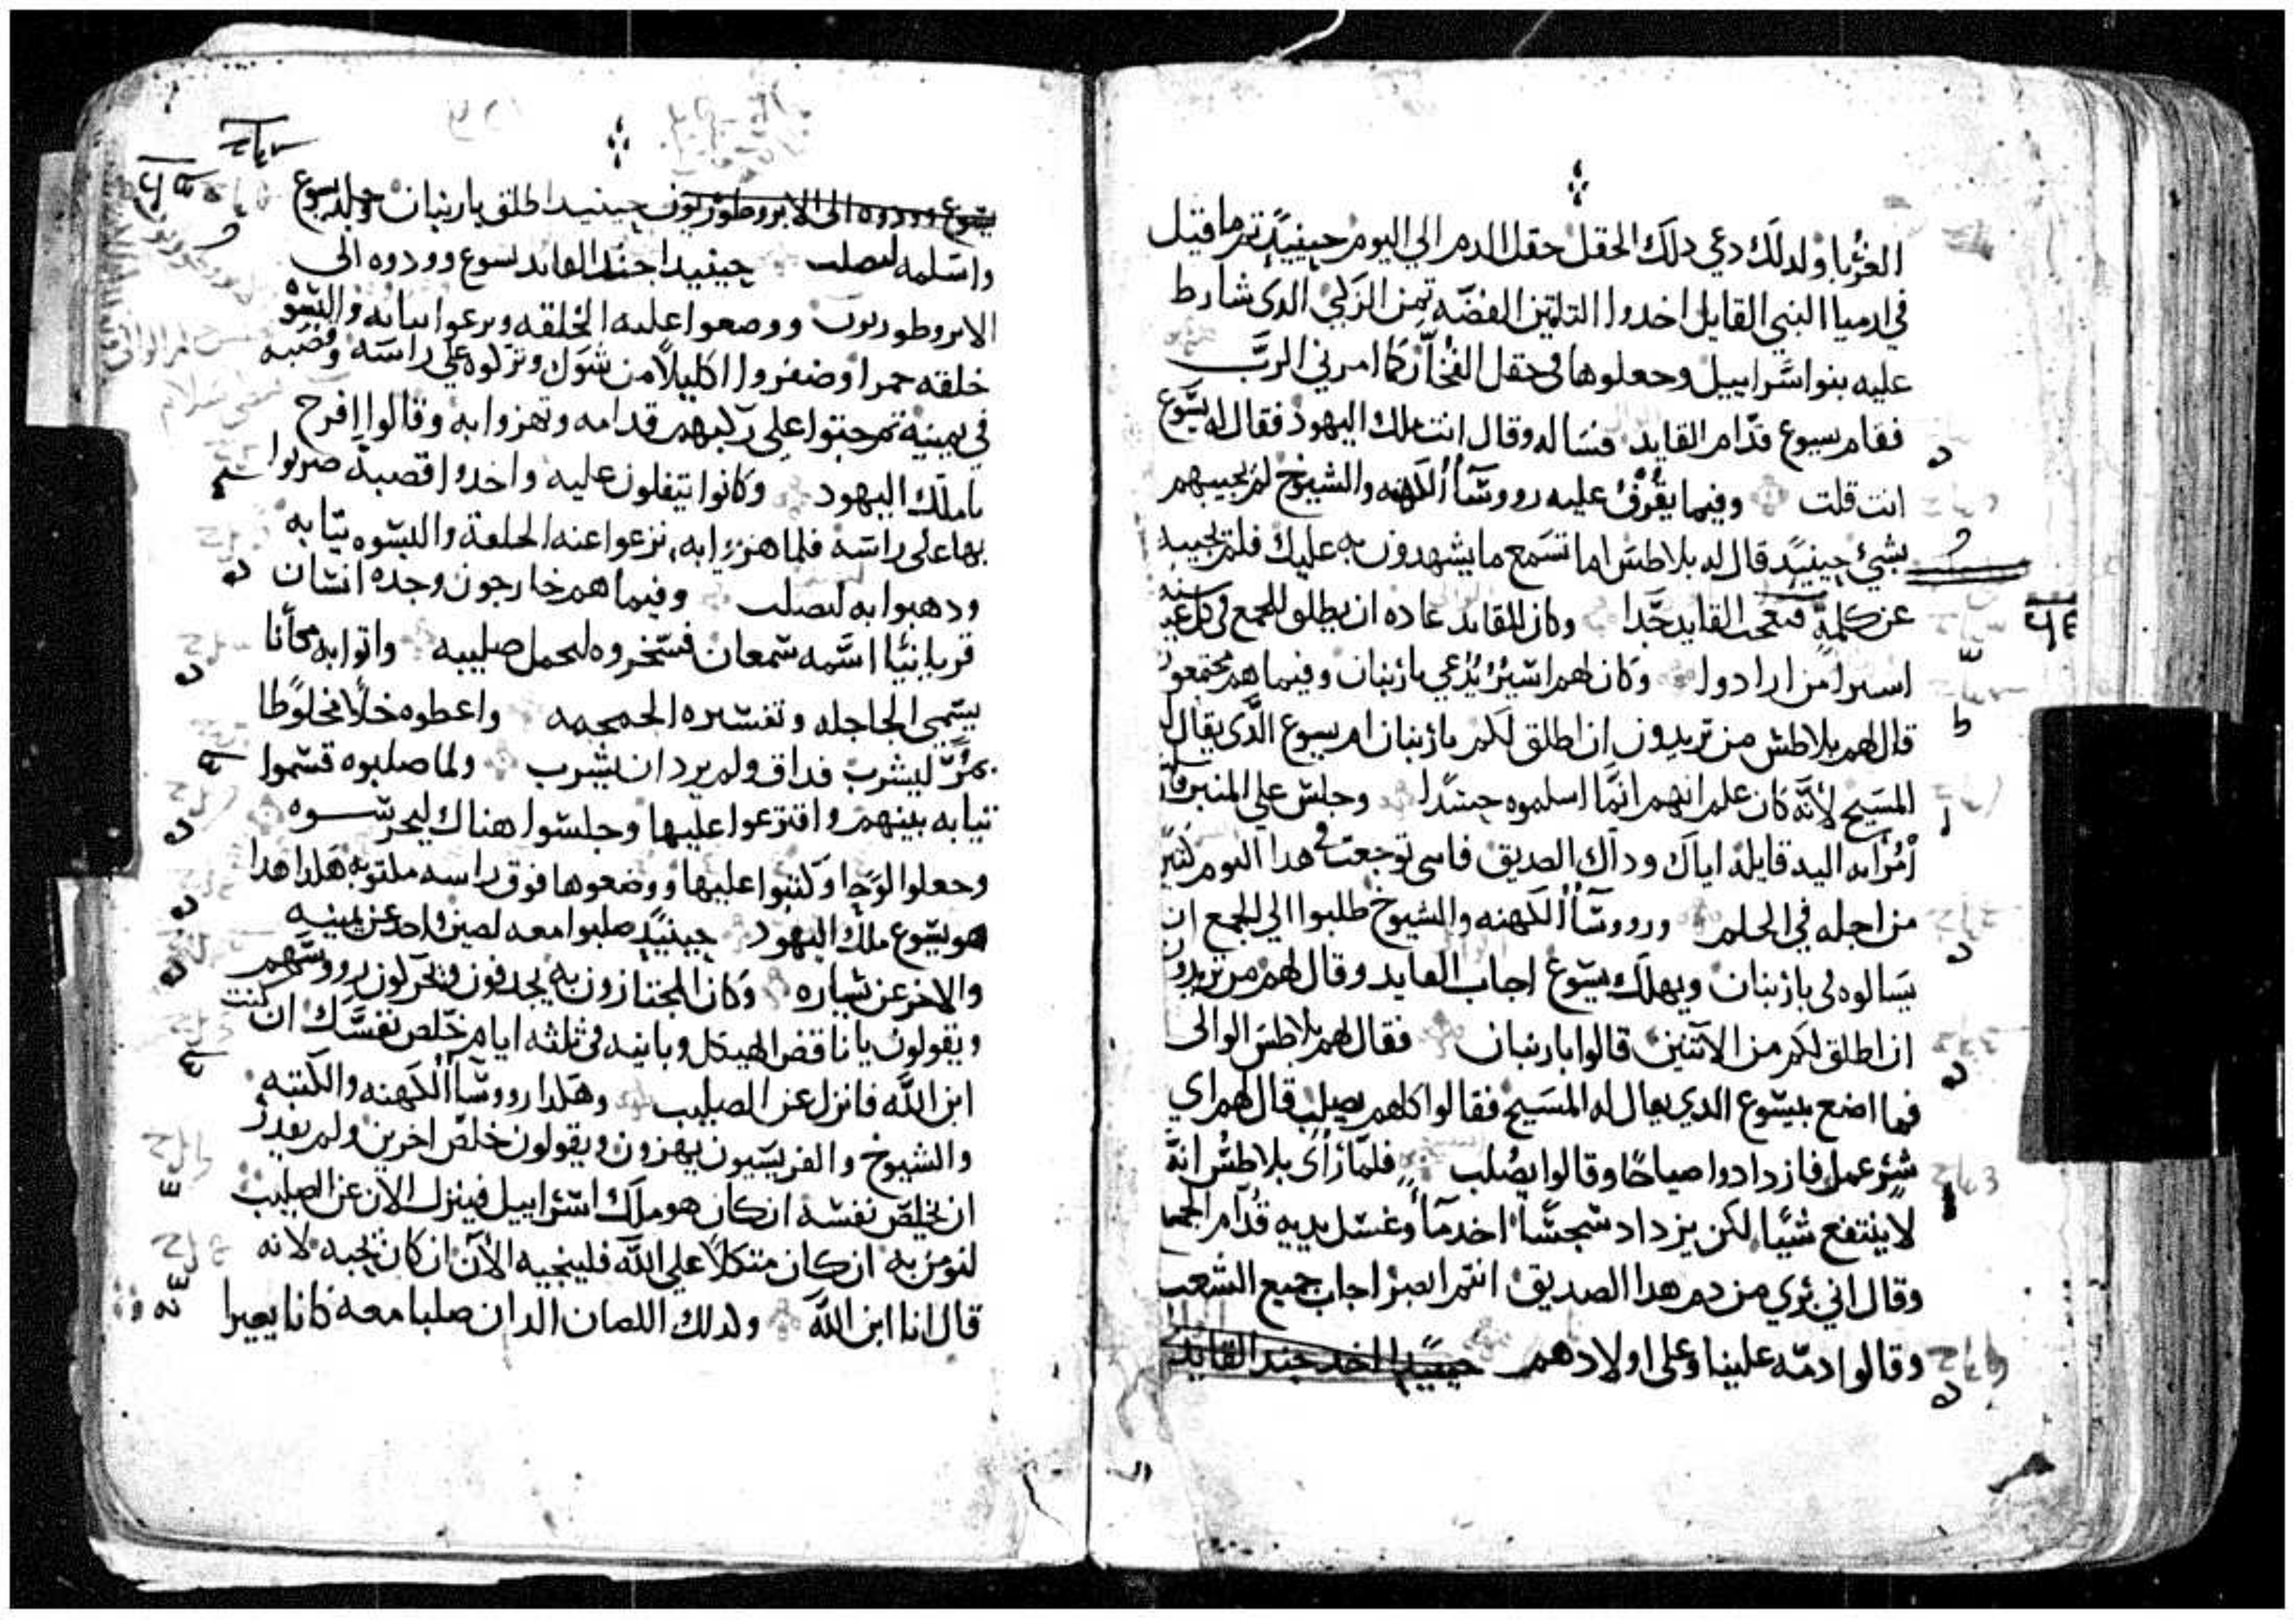 الغربا ولدلك دعي دلك الحقل حقل الدم الي اليوم حينيد تم ما قيل
في ارميا النبي القايل اخدوا التلتين الفضه تمن الزكي الدى شارط
عليه بنوا اسراييل وجعلوها في حقل الفخار كما امرني الرب
فقام يسوع قدام القايد فساله وقال انت ملك اليهود فقال له يسوع
انت قلت وفيما يقرف عليه رووسا الكهنه والشيوخ لم يجيبهم
بشي حينيد قال له بلاطس اما تسمع ما يشهدون به عليك فلم يجيبه
عن كلمة فتعجب القايد جدا وكان للقايد عاده ان يطلق للجمع في كل عيد سنه
اسيرا من ارادوا وكان لهم اسير يدعي بارنبان وفيما هم مجتمعون
قال لهم بلاطس من تريدون ان اطلق لكم بارنبان ام يسوع الدى يقال له
المسيح لانه كان علم انهم انما اسلموه حسدا وجلس على المنبر
امراته اليه قايلة اياك وداك الصديق فانى توجعت في هدا اليوم كتير
من اجله في الحلم ورووسا الكهنه والشيوخ طلبوا الي الجمع ان
يسالوه لى بارنبان ويهلك يسوع اجاب القايد وقال لهم من تريدون
ان اطلق لكم من الاتنين قالوا بارنبان فقال لهم بلاطس الوالى
فما اصنع بيسوع الدي يقال له المسيح فقالوا كلهم يصلب قال لهم اي
شر عمل فازدادوا صياحا وقالوا يصلب فلما راى بلاطس انه
لا ينتفع شيا لكن يزداد سجسا اخد ما وغسل يديه قدام الجمع
وقال اني بري من دم هدا الصديق انتم ابصر اجاب جميع الشعب
وقالوا دمه علينا وعلى اولادهم حينيدا اخد جند القايد
يسوع وودوه الى الابروطوريون حينيد اطلق بارنبان وجلد يسوع
واسلمه ليصلب حينيد اجند القايد يسوع وودوه الى
الابروطوريون ووضعوا عليه الخلقه ونزعوا تيابه والبسوه
خلقه حمرا وضفروا اكليلا من شوك وتركوه على راسه وقصبه
في يمينه تم جتوا على ركبهم قدامه وتهزوا به وقالوا افرح
يا ملك اليهود وكانوا يتفلون عليه واخدوا قصبة ضربوا
بها على راسه فلما هزوا به نزعوا عنه الحلقة والبسوه تيابه
ودهبوا به ليصلب وفيما هم خارجون وجده انسان
قريانيا اسمه سمعان فسخروه ليحمل صليبه واتوا به مكانا
يسمى الجاجله وتفسيره الجمجمه واعطوه خلا مخلوطا
بمر ليشرب فداق ولم يرد ان يشرب ولما صلبوه قسموا
تيابه بينهم واقترعوا عليها وجلسوا هناك ليحرسوه
وجعلوا لوحا وكتبوا عليها ووضعوها فوق راسه ملتوبه هكدا هدا
هو يسوع ملك اليهود حينيد صلبوا معه لصين واحد عن يمينه
والاخر عن يساره وكان المجتازون به يجدفون ويحركون رووسهم
ويقولون يا ناقض الهيكل وبانيه في ثلثه ايام خلص نفسك ان كنت
ابن الله فانزل عن الصليب وهكدا رووسا الكهنه والكتبه
والشيوخ والفريسيون يهزون ويقولون خلص اخرين ولم يقدر
ان يخلص نفسه ان كان هو ملك اسراييل فينزل الان عن الصليب
لنومن به ان كان متكلا على الله فلينجيه الان ان كان يحبه لانه
قال انا ابن الله ولدلك اللصان الدان صلبا معه كانا يعيرا